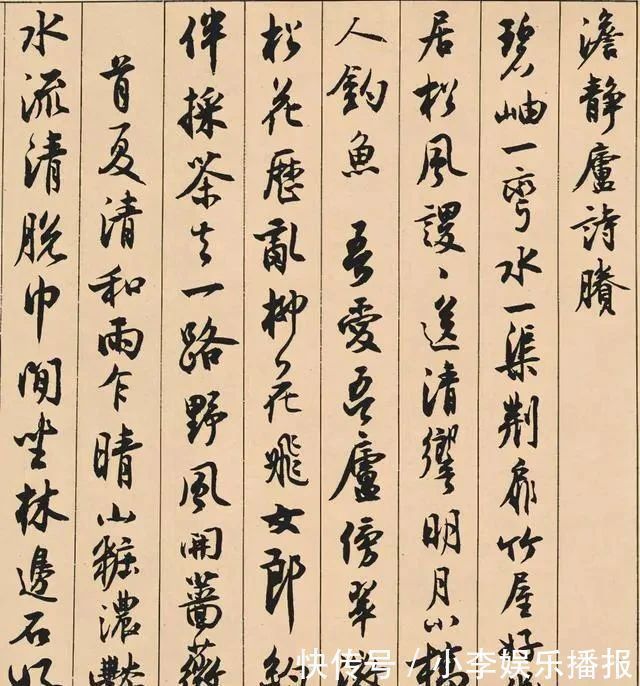 澹静廬詩賸
碧岫一弯水一渠荆扉竹屋好
居松風謖〻送清響明月小橋
人釣魚 吾愛吾廬傍翠
松花歷亂柳花飛女郎約
伴採茶去一路野風開薔薇
首夏清和雨乍晴山糚濃艶
水流清脱巾閒坐林邊石好
快传号/小李娱乐播报